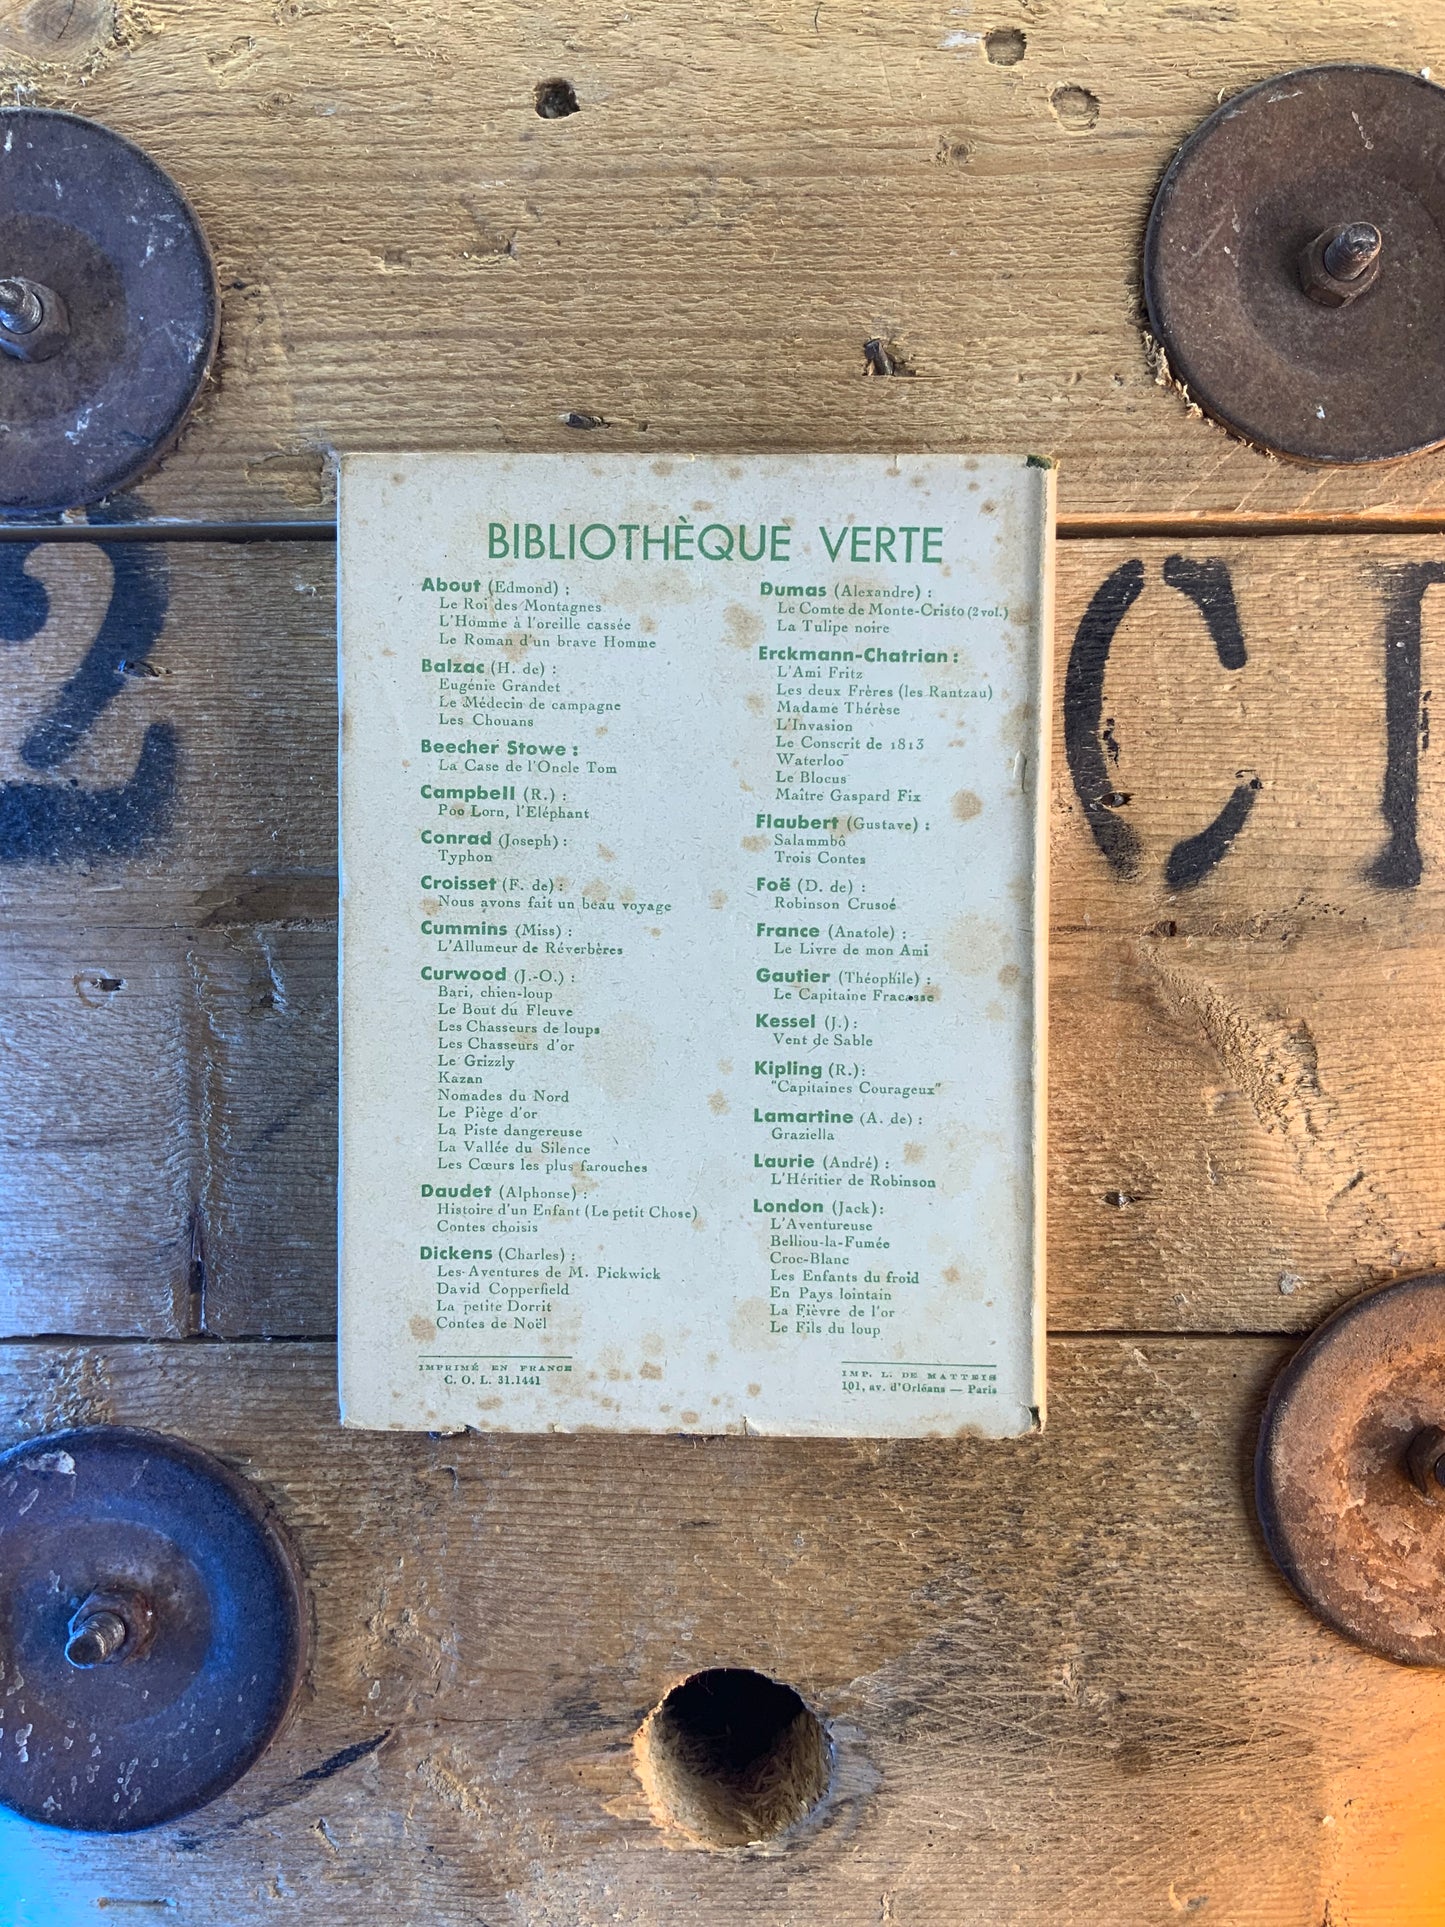 BIBLIOTHÈQUE VERTE
About (Edmond) :
Le Roi des Montagnes
L'Homme à l'oreille cassée
Le Roman d'un brave Homme
Balzac (H. de) :
Eugénie Grandet
Le Médecin de campagne
Les Chouans
Beecher Stowe :
La Case de l'Oncle Tom
Campbell (R.) :
Poo Lorn, l'Eléphant
Conrad (Joseph) :
Typhon
Croisset (F. de) :
Nous avons fait un beau voyage
Cummins (Miss) :
L'Allumeur de Réverbères
Curwood (J.-O.) :
Bari, chien-loup
Le Bout du Fleuve
Les Chasseurs de loups
Les Chasseurs d'or
Le Grizzly
Kazan
Nomades du Nord
Le Piège d'or
La Piste dangereuse
La Vallée du Silence
Les Cœurs les plus farouches
Daudet (Alphonse) :
Histoire d'un Enfant (Le petit Chose)
Contes choisis
Dickens (Charles) :
Les Aventures de M. Pickwick
David Copperfield
La petite Dorrit
Contes de Noël
IMPRIMÉ EN FRANCE
C. O. L. 31.1441
Dumas (Alexandre) :
Le Comte de Monte-Cristo (2 vol.)
La Tulipe noire
Erckmann-Chatrian :
L'Ami Fritz
Les deux Frères (les Rantzau)
Madame Thérèse
L'Invasion
Le Conscrit de 1813
Waterloo
Le Blocus
Maître Gaspard Fix
Flaubert (Gustave) :
Salammbô
Trois Contes
Foë (D. de) :
Robinson Crusoé
France (Anatole) :
Le Livre de mon Ami
Gautier (Théophile) :
Le Capitaine Fracasse
Kessel (J.) :
Vent de Sable
Kipling (R.) :
"Capitaines Courageux"
Lamartine (A. de) :
Graziella
Laurie (André) :
L'Héritier de Robinson
London (Jack) :
L'Aventureuse
Belliou-la-Fumée
Croc-Blanc
Les Enfants du froid
En Pays lointain
La Fièvre de l'or
Le Fils du loup
IMP. L. DE MATTEIS
101, av. d'Orléans — Paris
2
C